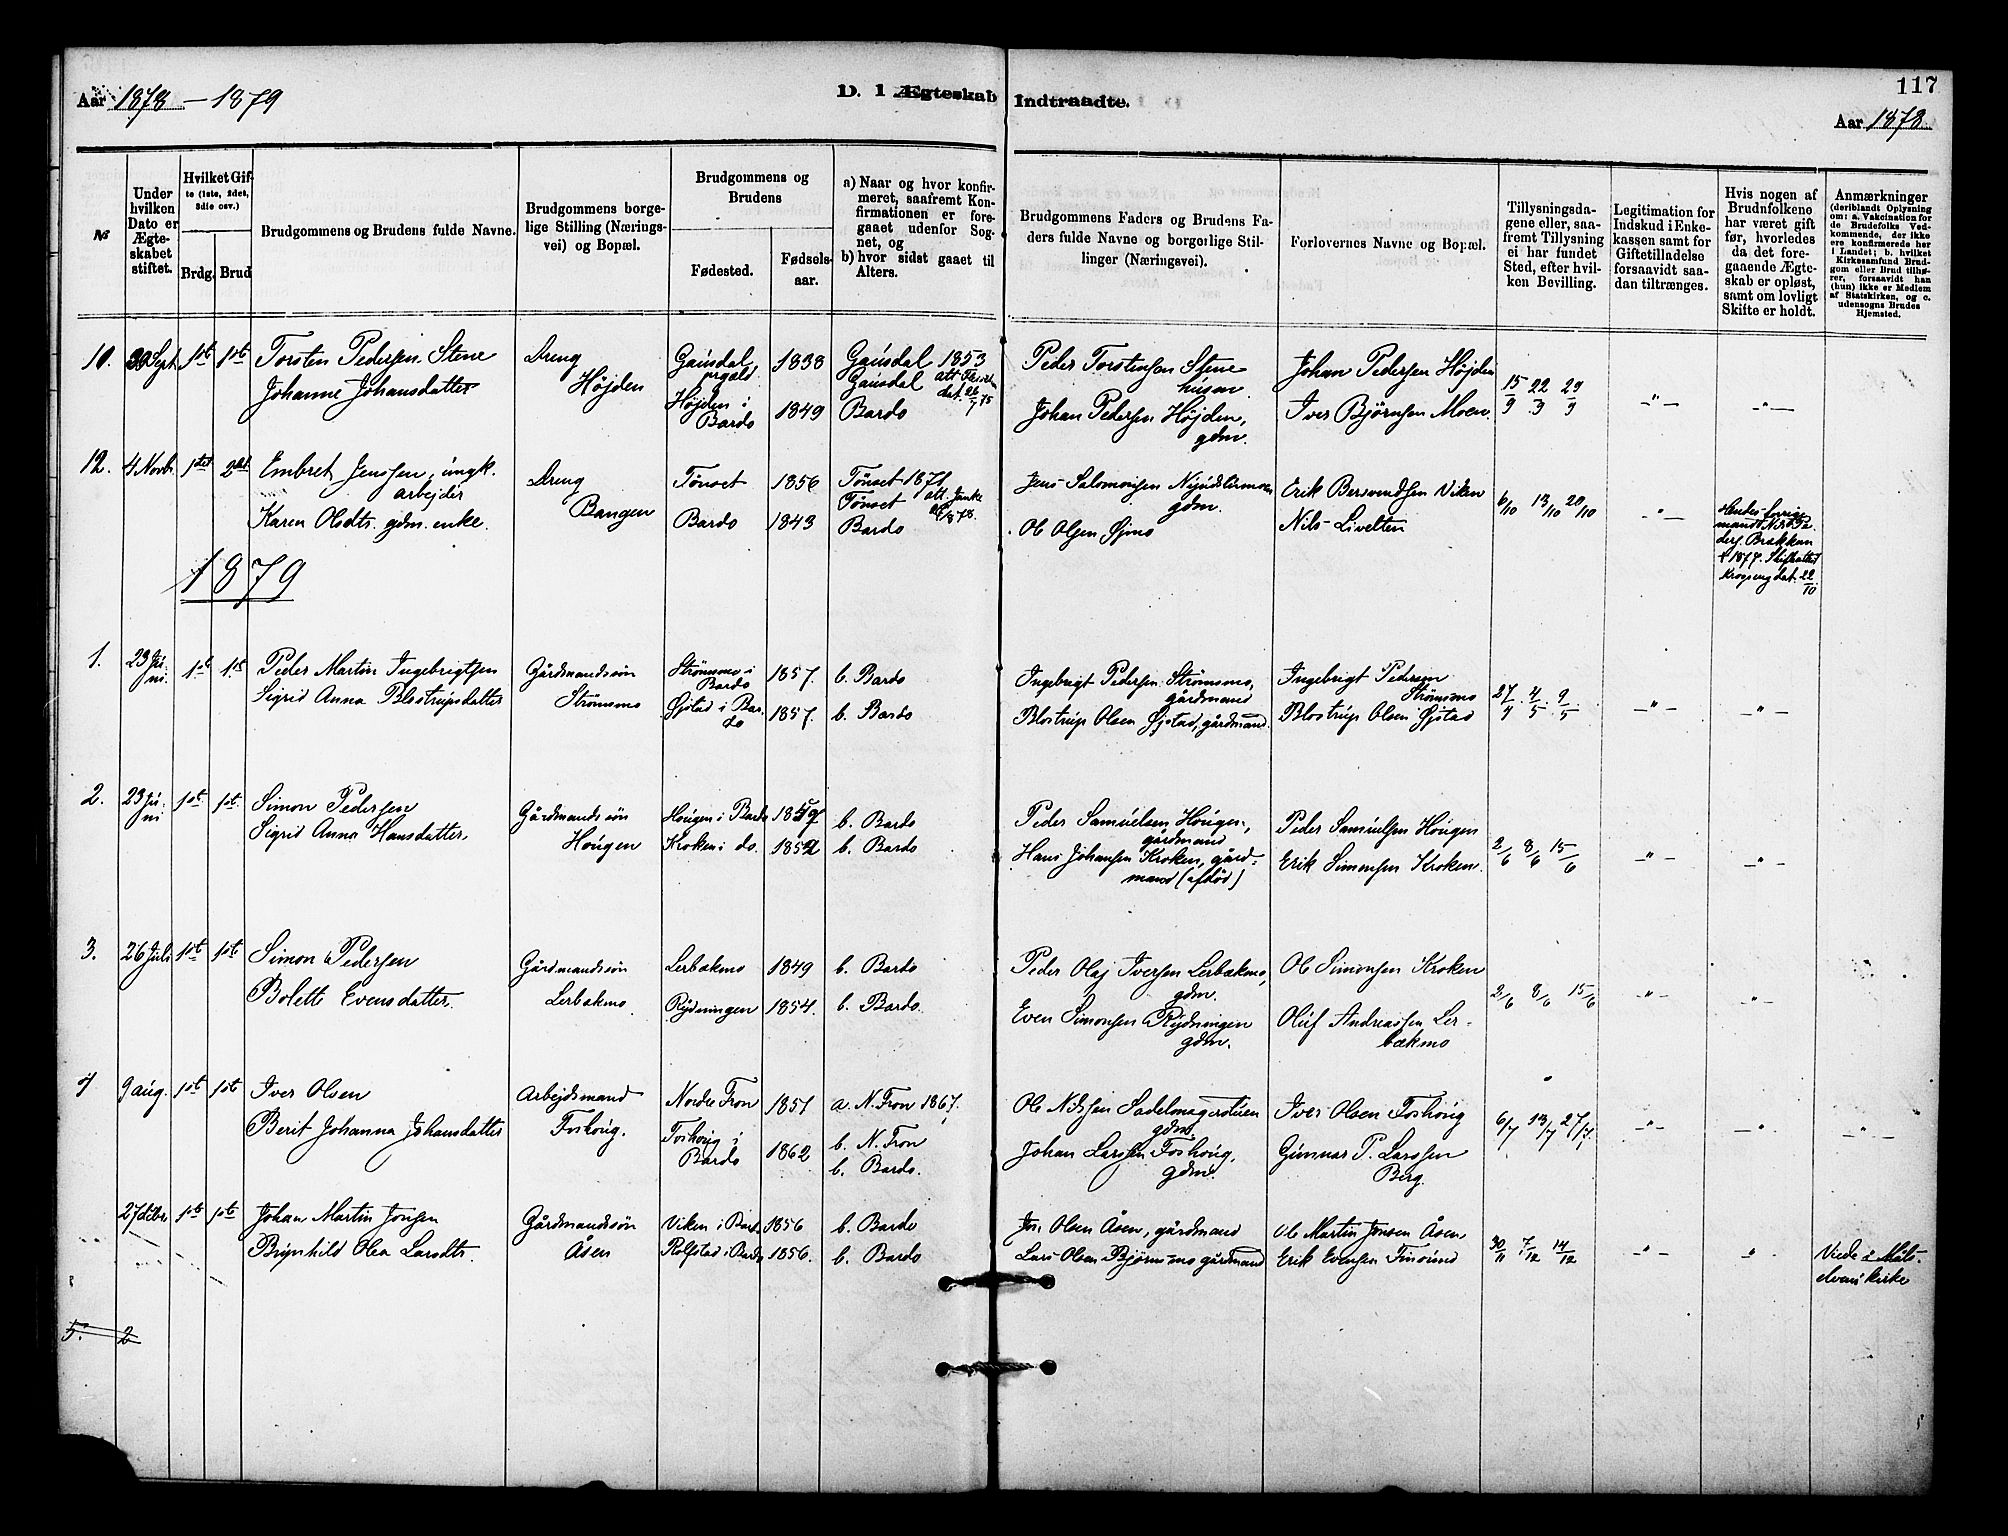 Aar 1878 - 1879
D. 1 Ægteskab Indtraadte.
117
Aar 1878
№
Under hvilken Dato er Ægteskabet stiftet.
Hvilket Gifte (1ste, 2det, 3die osv.)
Brdg. Brud
Brudgommens og Brudens fulde Navne.
Brudgommens borgelige Stilling (Næringsvei) og Bopæl.
Brudgommens og Brudens
Fødested.
Fødselsaar.
a) Naar og hvor konfirmeret, saafremt Konfirmationen er foregaaet udenfor Sognet, og
b) hvor sidst gaaet til Alters.
Brudgommens Faders og Brudens Faders fulde Navne og borgerlige Stillinger (Næringsvei).
Forlovernes Navne og Bopæl.
Tillysningsdagene eller, saafremt Tillysning ei har fundet Sted, efter hvilken Bevilling.
Legitimation for Indskud i Enkekassen samt for Giftetilladelse forsaavidt saadan tiltrænges.
Hvis nogen af Brudnfolkene har været gift før, hvorledes da det foregaaende Ægteskab er opløst, samt om lovligt Skifte er holdt.
Anmærkninger
(deriblandt Oplysning om: a. Vakcination for de Brudefolks Vedkommende, der ikke ere konfirmerede her i Landet; b. hvilket Kirkesamfund Brudgom eller Brud tilhører, forsaavidt han (hun) ikke er Medlem af Statskirken, og c. udensogns Brudes Hjemsted.
10. 30 Sept. 1ste 1ste Torsten Pedersen Stene Dreng Gausdal prgæld. 1838 Gausdal 1853 Peder Torstensen Stene husm. Johan Pedersen Højden 15/9 22/9 29/9 -"- -"-
Johanne Johansdatter Højden Højden i Bardo 1849 Gausdal Bardo Johan Pedersen Højden, gdm. Iver Bjørnsen Moen.
12. 4 Novb. 1ste 2det Embret Jenssen, ungk. arbejder Dreng Tønset 1856 Tønset 1871 Jens Salomonsen gdm. Erik Bersvendsen Viken 6/10 13/10 20/10 -"-
Karen Olsdtr. gdm. enke. Bangen Bardo 1843 Tønset Bardo Ole Olsen Øjmo Nils Livelten
1879
1. 23 Juni 1ste 1ste Peder Martin Ingebrigtsen Gårdmandssøn Strømsmo i Bardo 1857. b. Bardo Ingebrigt Pedersen Strømsmo, gårdmand Ingebrigt Pedersen Strømsmo 27/4 4/5 9/5 -"- -"-
Sigrid Anna Blostrupsdatter Strømsmo Øjstad i Bardo 1857. b. Bardo Blostrup Olsen Øjstad, gårdmand. Blostrup Olsen Øjstad
2. 23 Juni 1ste 1ste Simon Pedersen Gårdmandssøn Hougen i Bardo b. Bardo Peder Samuelsen Hougen, gårdmand Peder Samuelsen Hougen 2/6 8/6 15/6 -"- -"-
Sigrid Anna Hansdatter Hougen Kroken i do. 1852 b. Bardo Hans Johansen Kroken, gårdmand (afdød) Erik Simonsen Kroken.
3. 26 Juli 1ste 1ste Simon Pedersen Gårdmandssøn Lerbækmo 1849 b. Bardo Peder Olaj Iversen Lerbækmo, gdm. Ole Simonsen Kroken 2/6 8/6 15/6 -"- -"-
Bolette Evensdatter. Lerbækmo Rydningen 1854. b. Bardo. Even Simonsen Rydningen gdm. Oluf Andreassen Lerbækmo
4 9 aug. 1ste 1ste Iver Olsen Arbejdsmand Nordre Fron 1851 a. N. Fron 1867. b. N. Fron Ole Nilssen gdm. Iver Olsen Foshoug 6/7 13/7 27/7 -"- -"- -"-
Berit Johanna Johansdatter Foshoug. Foshoug i Bardo 1862 b. Bardo. Johan Larssen Foshoug, gdm. Gunnar P. Larssen Berg.
27 decbr 1ste 1ste Johan Martin Jonsen Gårdmandssøn Viken i Bardo 1856 b. Bardo Jon Olsen Åsen, gårdmand Ole Martin Jonsen Åsen 30/11 7/12 14/12 -"- " Viede i Målselvens kirke
Brynhild Olea Larsdtr. Åsen Rolfstad i Bardo 1856. b. Bardo Lars Olsen Bjørnsmo gårdmand Erik Evensen Finsund
5. 2